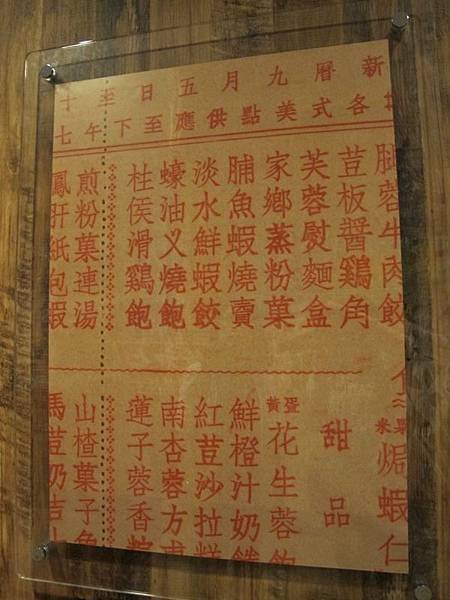 新曆九月五日至十
各式美點供應至下午七
蓉牛肉餃
荳板醬鷄角
芙蓉熨麵盒
家鄉蒸粉菓
脯魚蝦燒賣
淡水鮮蝦餃
蠔油叉燒飽
桂侯滑鷄飽
煎粉菓連湯
鳳肝紙包蝦
粟米焗蝦仁
甜品
蛋黃花生蓉
鮮橙汁奶
紅荳沙拉
南杏蓉方
蓮子蓉香
山楂菓子角
馬荳奶吉